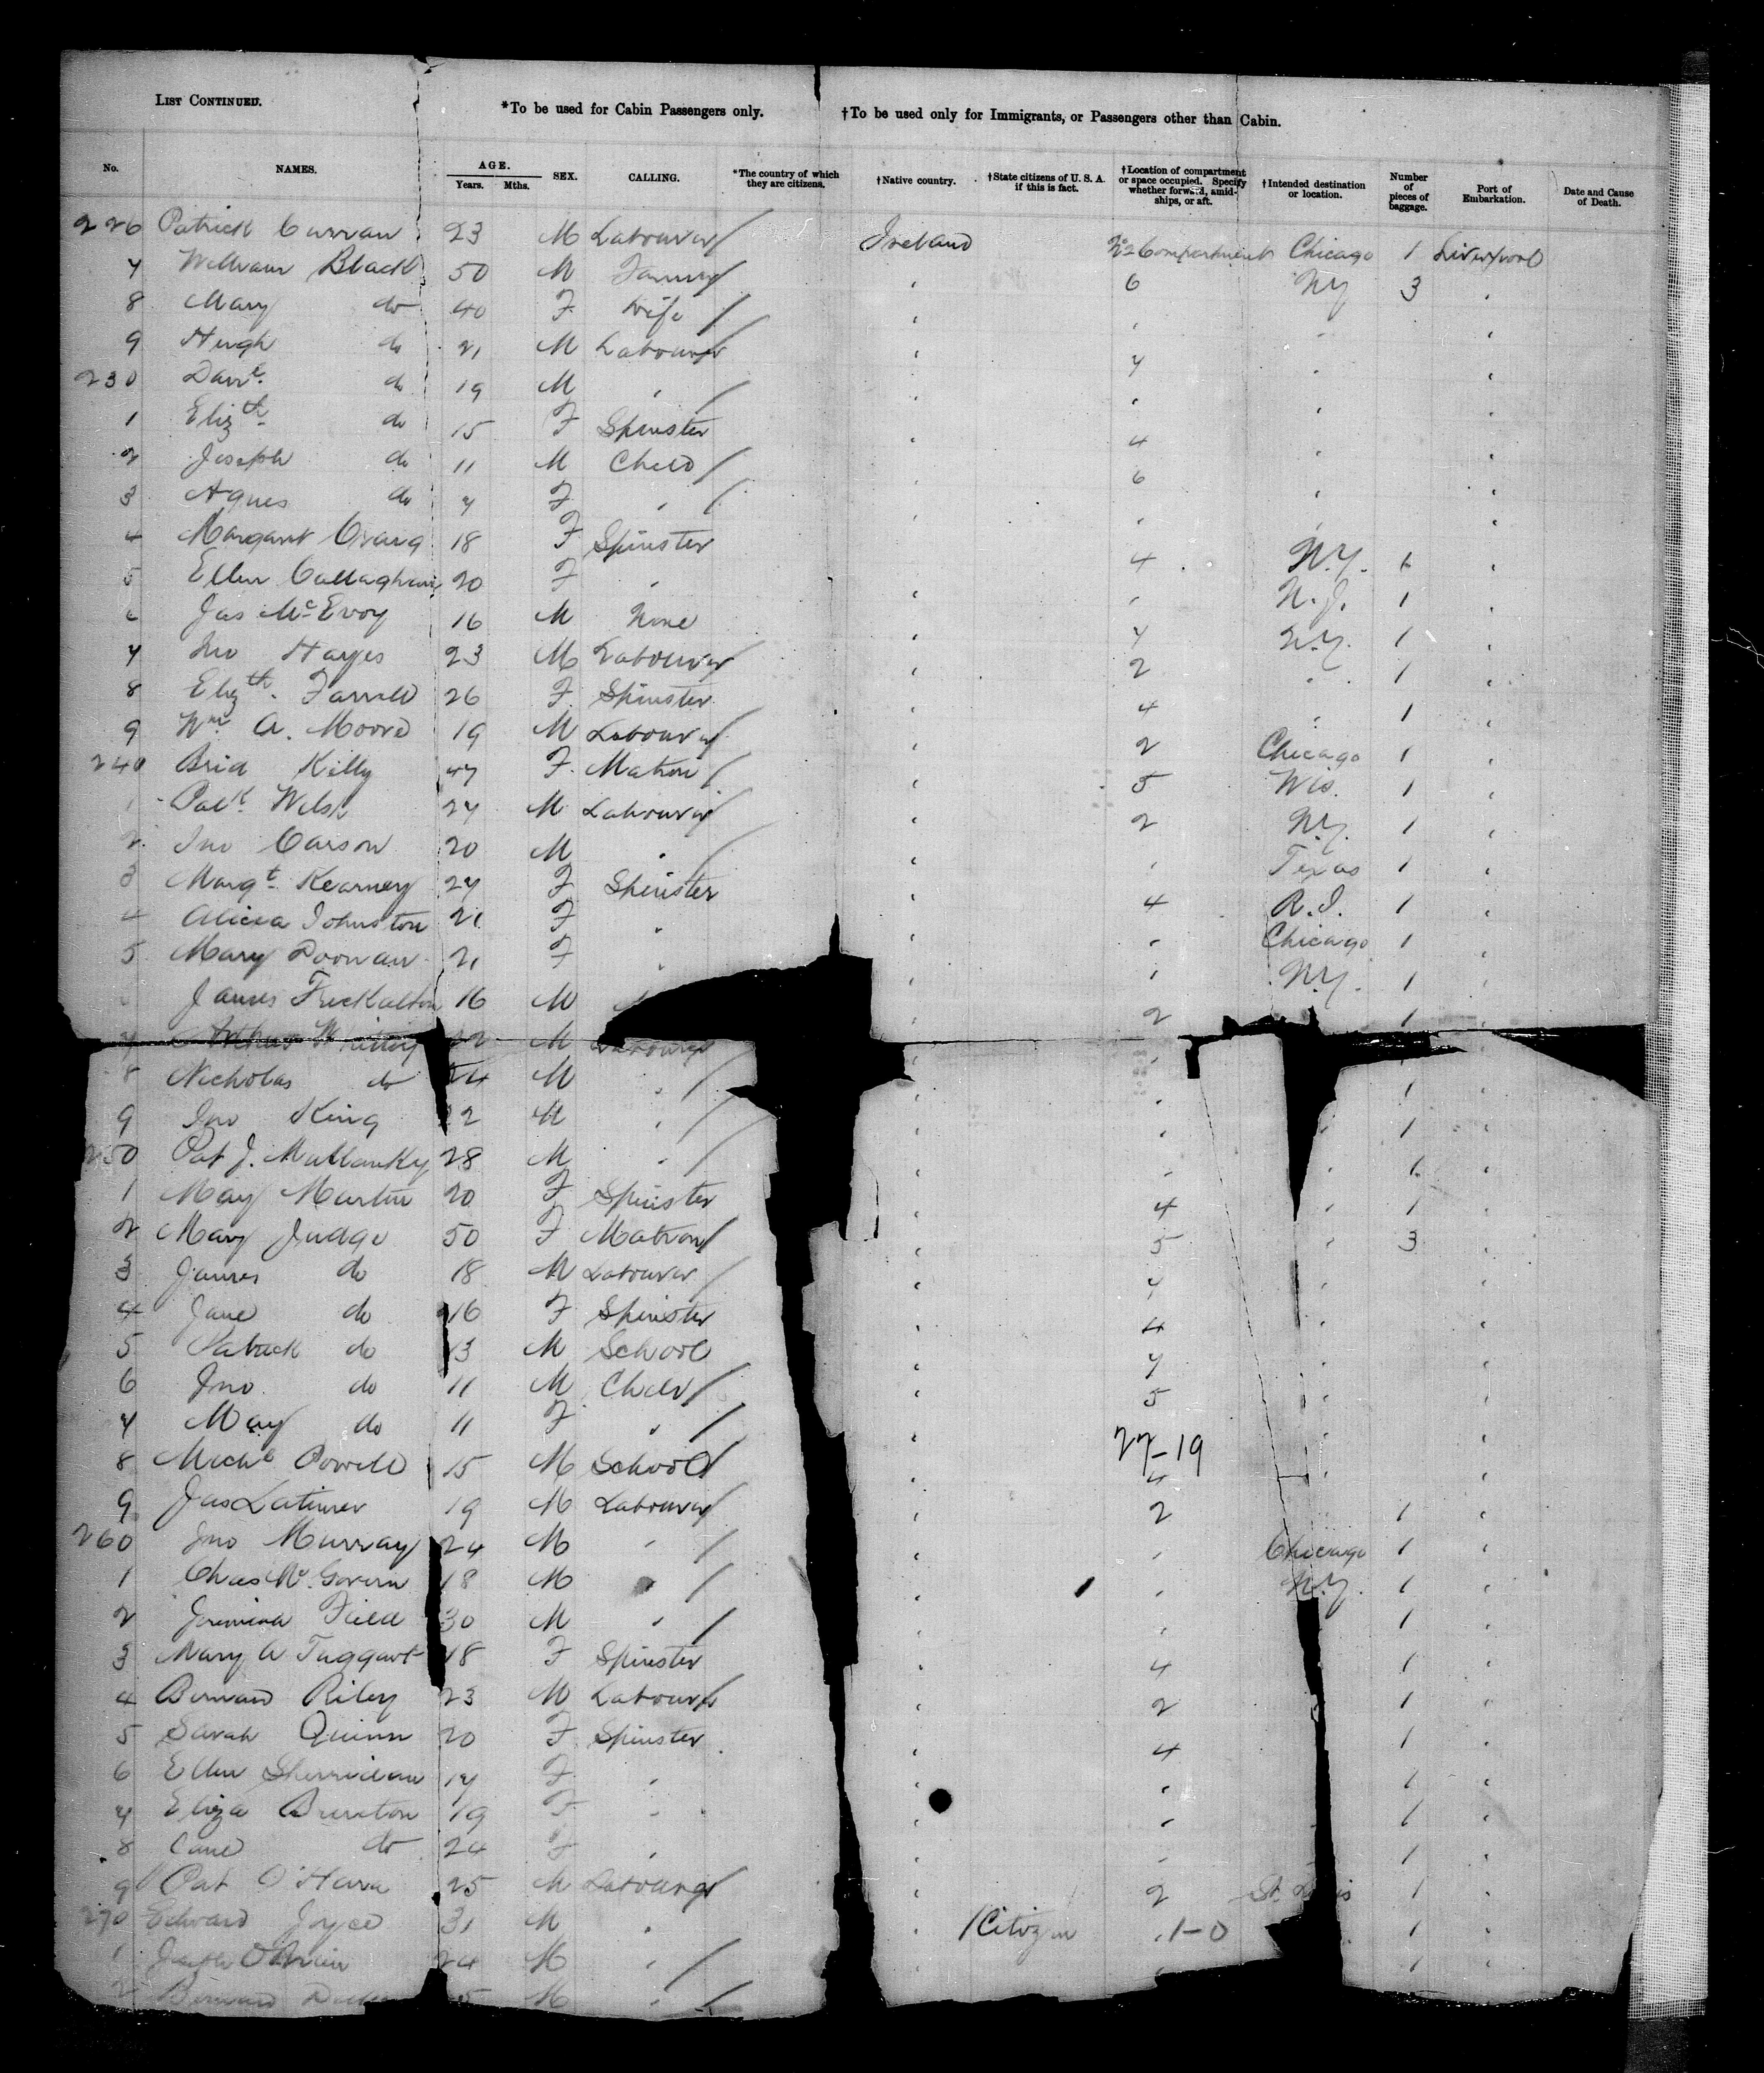 LIST CONTINUED. *To be used for Cabin Passengers only. †To be used only for Immigrants, or Passengers other than Cabin.
No. NAMES. AGE. Years. Mths. SEX. CALLING. *The country of which they are citizens. †Native country. †State citizens of U. S. A. if this is fact. †Location of compartment or space occupied. Specify whether forward, amid-ships, or aft. †Intended destination or location. Number of pieces of baggage. Port of Embarkation. Date and Cause of Death.
226 Patrick Curran 23 M Labourer / Ireland No 2 Compartment Chicago 1 Liverpool
7 William Black 50 M / " 6 NY 3 "
8 Mary do 40 F Wife / " " " "
9 Hugh do 21 M Labourer " 7 " "
230 do 19 M " / " " " "
1 Elizth do 15 F Spinster " 4 " "
2 Joseph do 11 M Child / " 6 " "
3 Agnes do 7 F " / " " " "
4 Margaret Craig 18 F Spinster " 4 N.Y. 1 "
5 Ellen Callaghan 20 F " " " N.J. 1 "
6 Jas McEvoy 16 M None " 7 N.Y. 1 "
7 Jno Hayes 23 M Labourer " 2 " 1 "
8 Elizth Farrell 26 F Spinster " 4 " 1 "
9 Wm A. Moore 19 M Labourer " 2 Chicago 1 "
240 Brid Killy 47 F Matron / " 5 Wis. 1 "
1 Patk Welsh 27 M Labourer " 2 NY. 1 "
2 Jno Carson 20 M " / " " Texas 1 "
3 Margt Kearney 27 F Spinster " 4 R.I. 1 "
4 Alicia Johnston 21 F " " " Chicago 1 "
5 Mary Doonan 21 F " " " N.Y. 1 "
James 16 M " 2 1 "
7 Arthur 22 M Labourer " "
8 Nicholas do 24 M " / " " 1 "
9 Jno King 22 M " / " " " 1 "
250 Pat J. Mullanky 28 M " / " " " 1 "
1 May Martin 20 F Spinster " 4 " 1 "
2 Mary Judge 50 F Matron / " 5 " 3 "
3 James do 18 M Labourer / " 7 " "
4 Jane do 16 F Spinster " 4 " "
5 do 13 M School " 7 " "
6 Jno do 11 M Child / " 5 " "
7 May do 11 F " / " 27-19 " "
8 Michl Powell 15 M School / " 4 " "
9 Jas Latimer 19 M Labourer " 2 1 "
260 Jno Murray 24 M " / " " Chicago 1 "
1 Chas McGovern 18 M " / " " N.Y. 1 "
2 Field 30 M " / " " 1 "
3 Mary A Taggart 18 F Spinster " 4 1 "
4 Bernard Riley 23 M Labourer " 2 1 "
5 Sarah Quinn 20 F Spinster " 4 1 "
6 Ellen Sherridan 17 F " " " 1 "
7 Eliza Brunton 19 F " " " 1 "
8 Jane do 24 F " " " 1 "
9 Pat O'Hara 25 M Labourer " 2 St. Louis 1 "
270 Edward Joyce 31 M " " Citizen 1-0 1 "
1 24 M " / " " 1 "
2 Bernard M " /